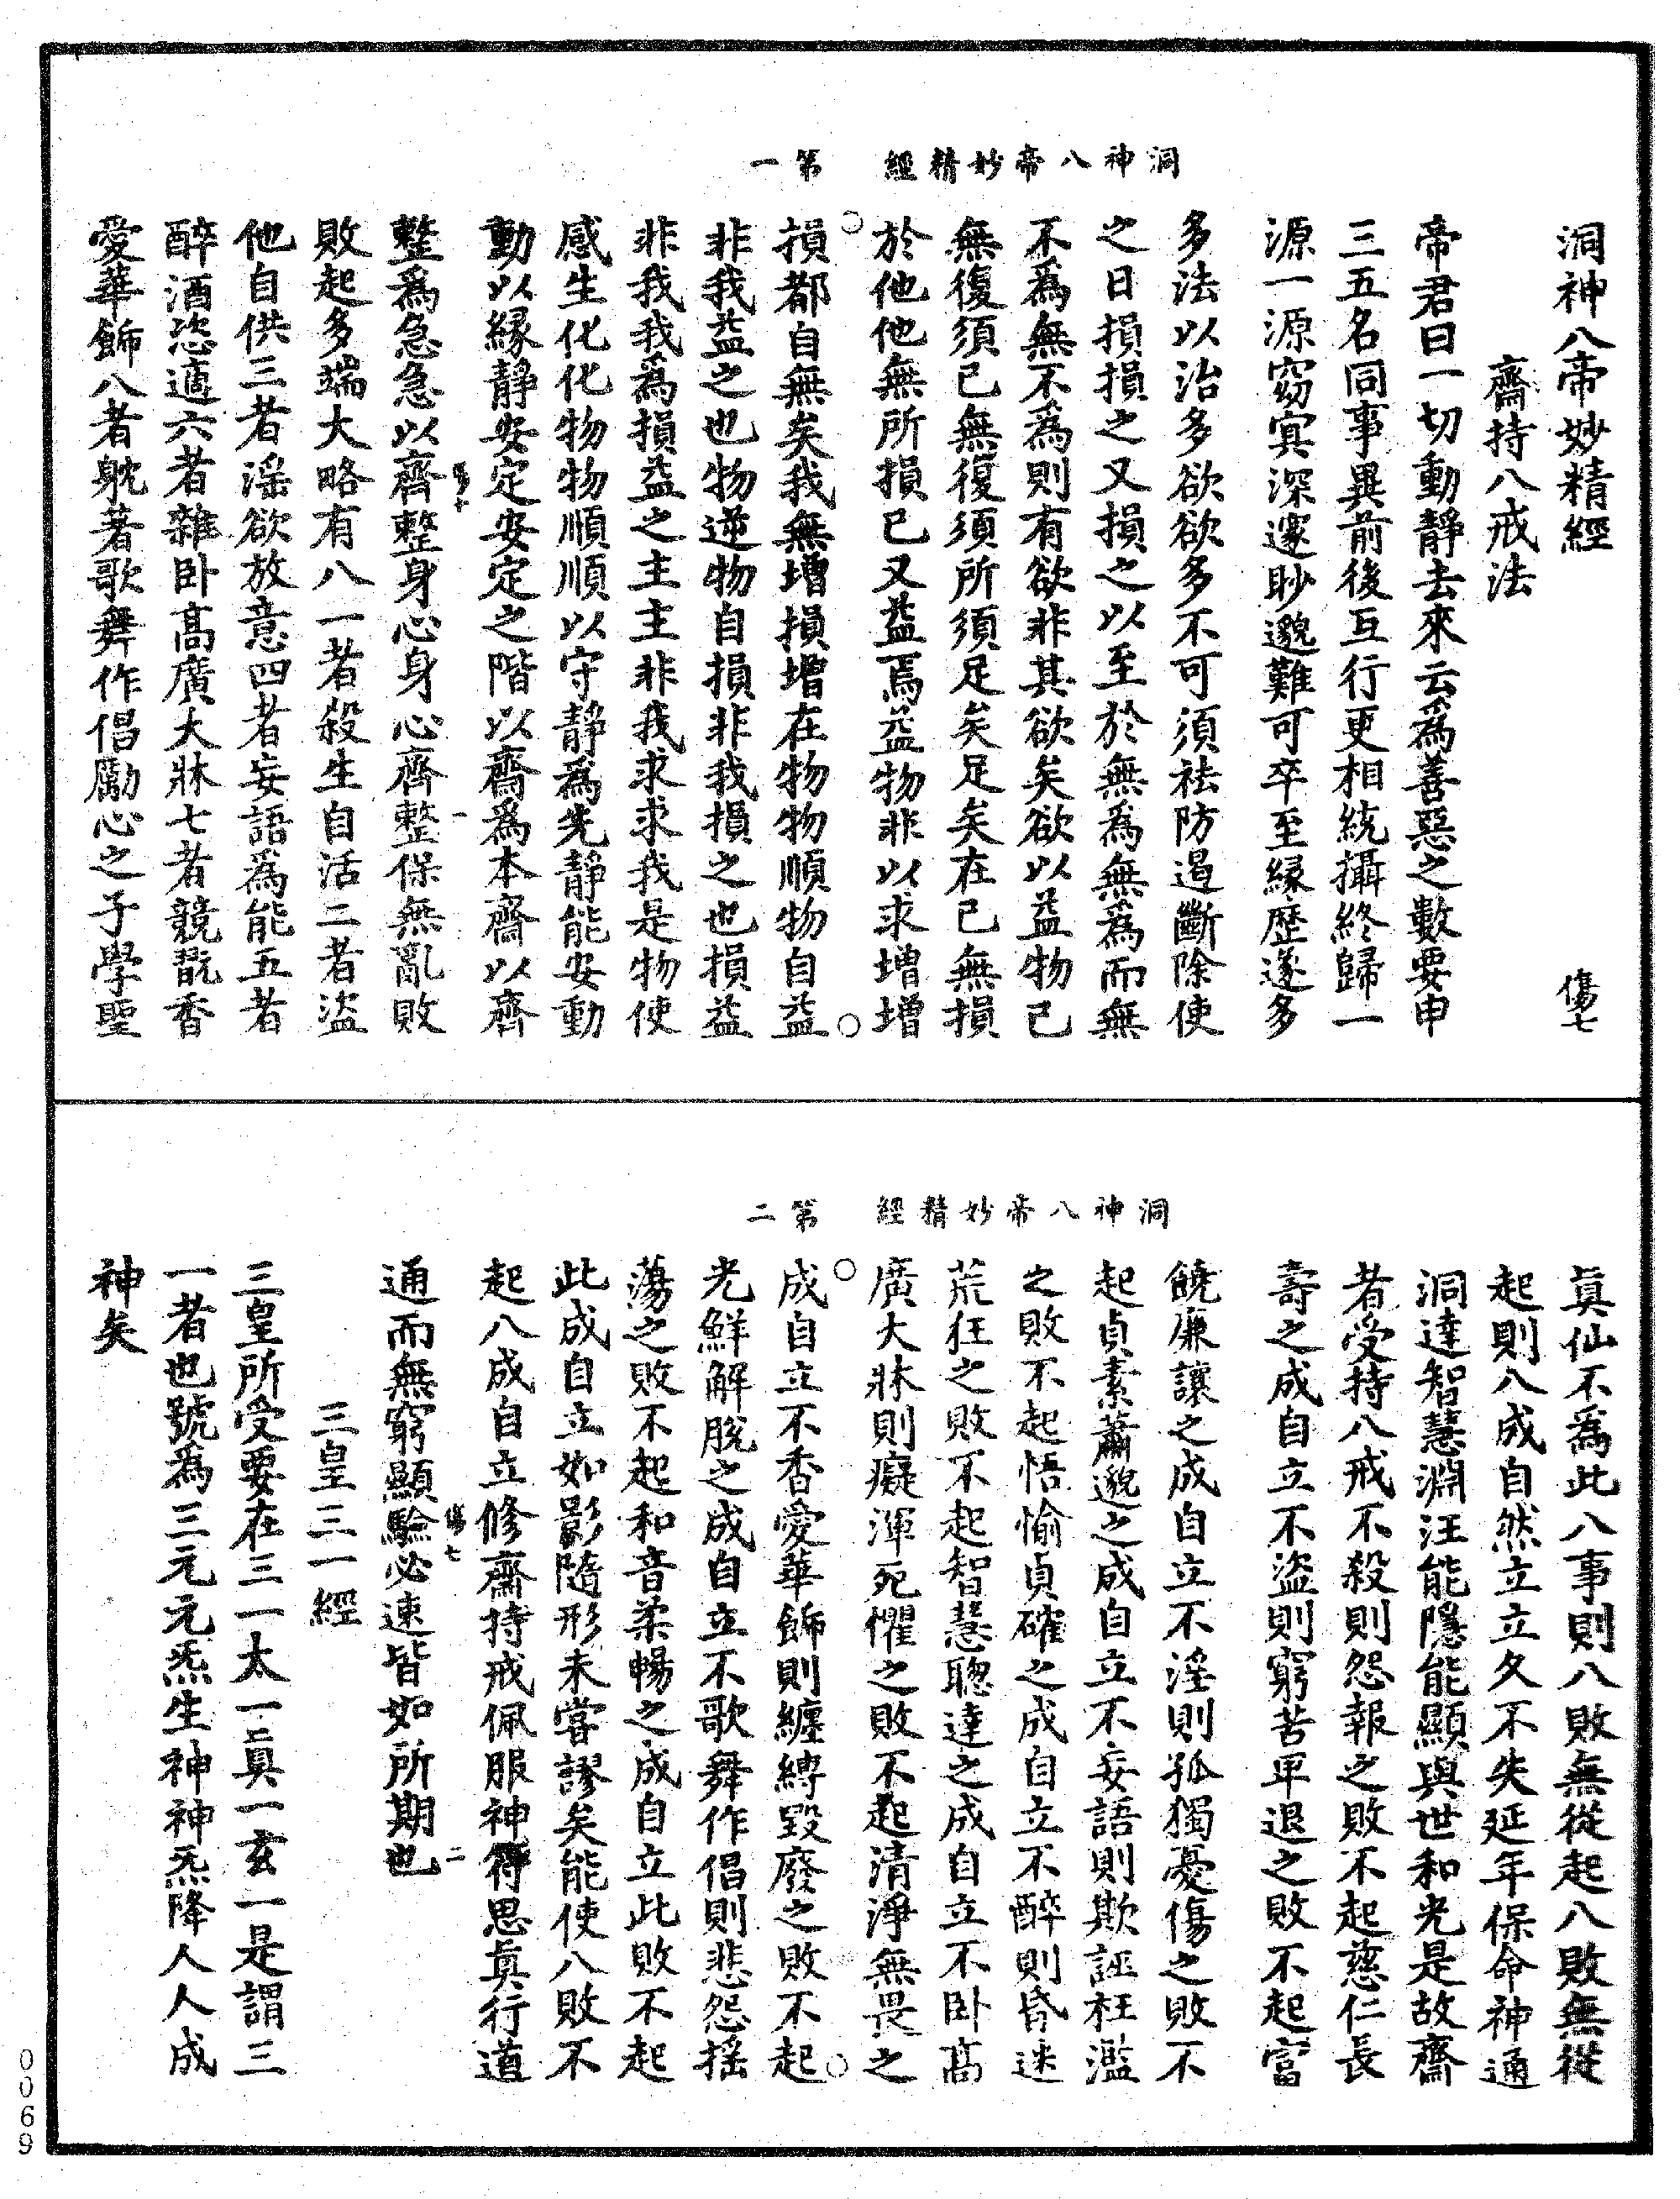 洞神八帝妙精經　第一
洞神八帝妙精經　傷七
齋持八戒法
帝君曰一切動靜去來云爲善惡之數要申
三五名同事異前後互行更相統攝終歸一
源一源窈冥深邃眇邈難可卒至緣歷遂多
多法以治多欲欲多不可須袪防遏斷除使
之日損損之又損之以至於無爲無爲而無
不爲無不爲則有欲非其欲矣欲以益物己
無復須己無復須所須足矣足矣在己無損
於他他無所損已又益焉益物非以求增增
損都自無矣我無增損增在物物順物自益
非我益之也物逆物自損非我損之也損益
非我我爲損益之主主非我求求我是物使
感生化化物物順順以守靜爲先靜能安動
動以緣靜安定安定之階以齋爲本齋以齊
傷七　一
整爲急急以齊整身心身心齊整保無亂敗
敗起多端大略有八一者殺生自活二者盜
他自供三者淫欲放意四者妄語爲能五者
醉酒恣適六者雜卧高廣大牀七者競翫香
愛華飾八者躭著歌舞作倡勵心之子學聖
洞神八帝妙精經　第二
眞仙不爲此八事則八敗無從起八敗無從
起則八成自然立立久不失延年保命神通
洞達智慧淵汪能隱能顯與世和光是故齋
者受持八戒不殺則怨報之敗不起慈仁長
壽之成自立不盜則窮苦卑退之敗不起富
饒廉讓之成自立不淫則孤獨憂傷之敗不
起貞素蕭邈之成自立不妄語則欺誣枉濫
之敗不起悟愉貞確之成自立不醉則昏迷
荒狂之敗不起智慧聰達之成自立不卧高
廣大牀則癡渾死懼之敗不起清淨無畏之
成自立不香愛華飾則纏縛毀廢之敗不起
光鮮解脫之成自立不歌舞作倡則悲怨搖
蕩之敗不起和音柔暢之成自立此敗不起
此成自立如影隨形未嘗謬矣能使八敗不
起八成自立修齋持戒佩服神符思眞行道
傷七　二
通而無窮顯驗必速皆如所期也
三皇三一經
三皇所受要在三一太一眞一玄一是謂三
一者也號爲三元元炁生神神炁降人人成
神矣
0069